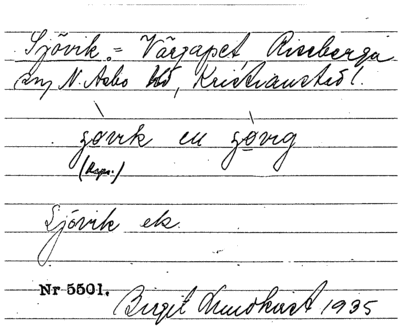 Sjövik = Vårgapet, Riseberga
sn, N. Åsbo hd, Kristianstads l.
gøvik en gøvig
(Rops.)
Sjövik ek.
Nr 5501.
Birgit Lundkvist 1935